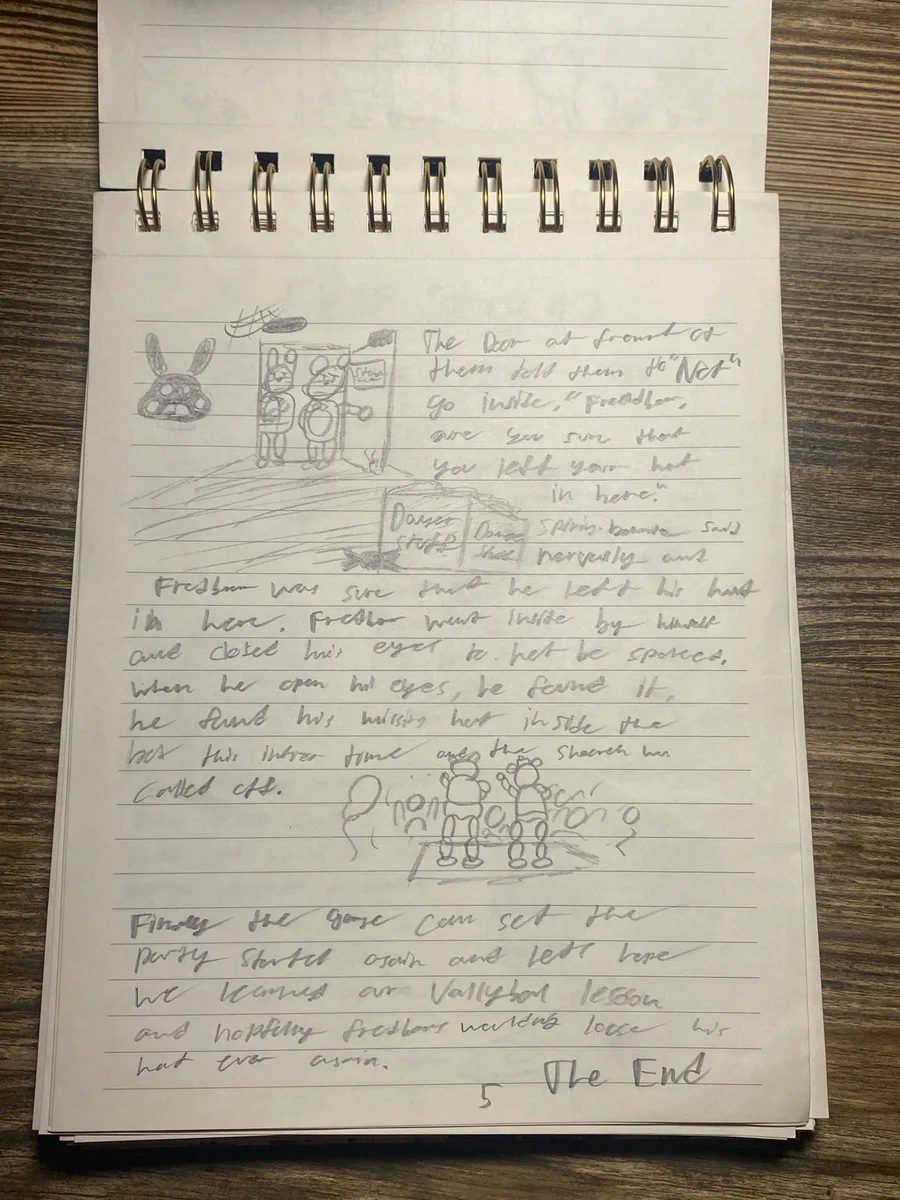 The Door at frount of
them told them to "Not"
go inside, "Fredbear,
are you sure that
you left your hat
in here."
Spring-bonnie said
nerquily and
Staff
Danger
stuff
Dange
Fredbear was sure that he left his hat
in here. Fredbear went inside by himself
and closed his eyes to not be spooked.
When he open his eyes, he found it,
he found his missing hat inside the
this time and the Shearch was
called off.
Finally the gange can get the
party started again and let's hope
we learned are Vallybal lesson
and hopfelly fredbear wouldn't loose his
hat ever again.
The End
5